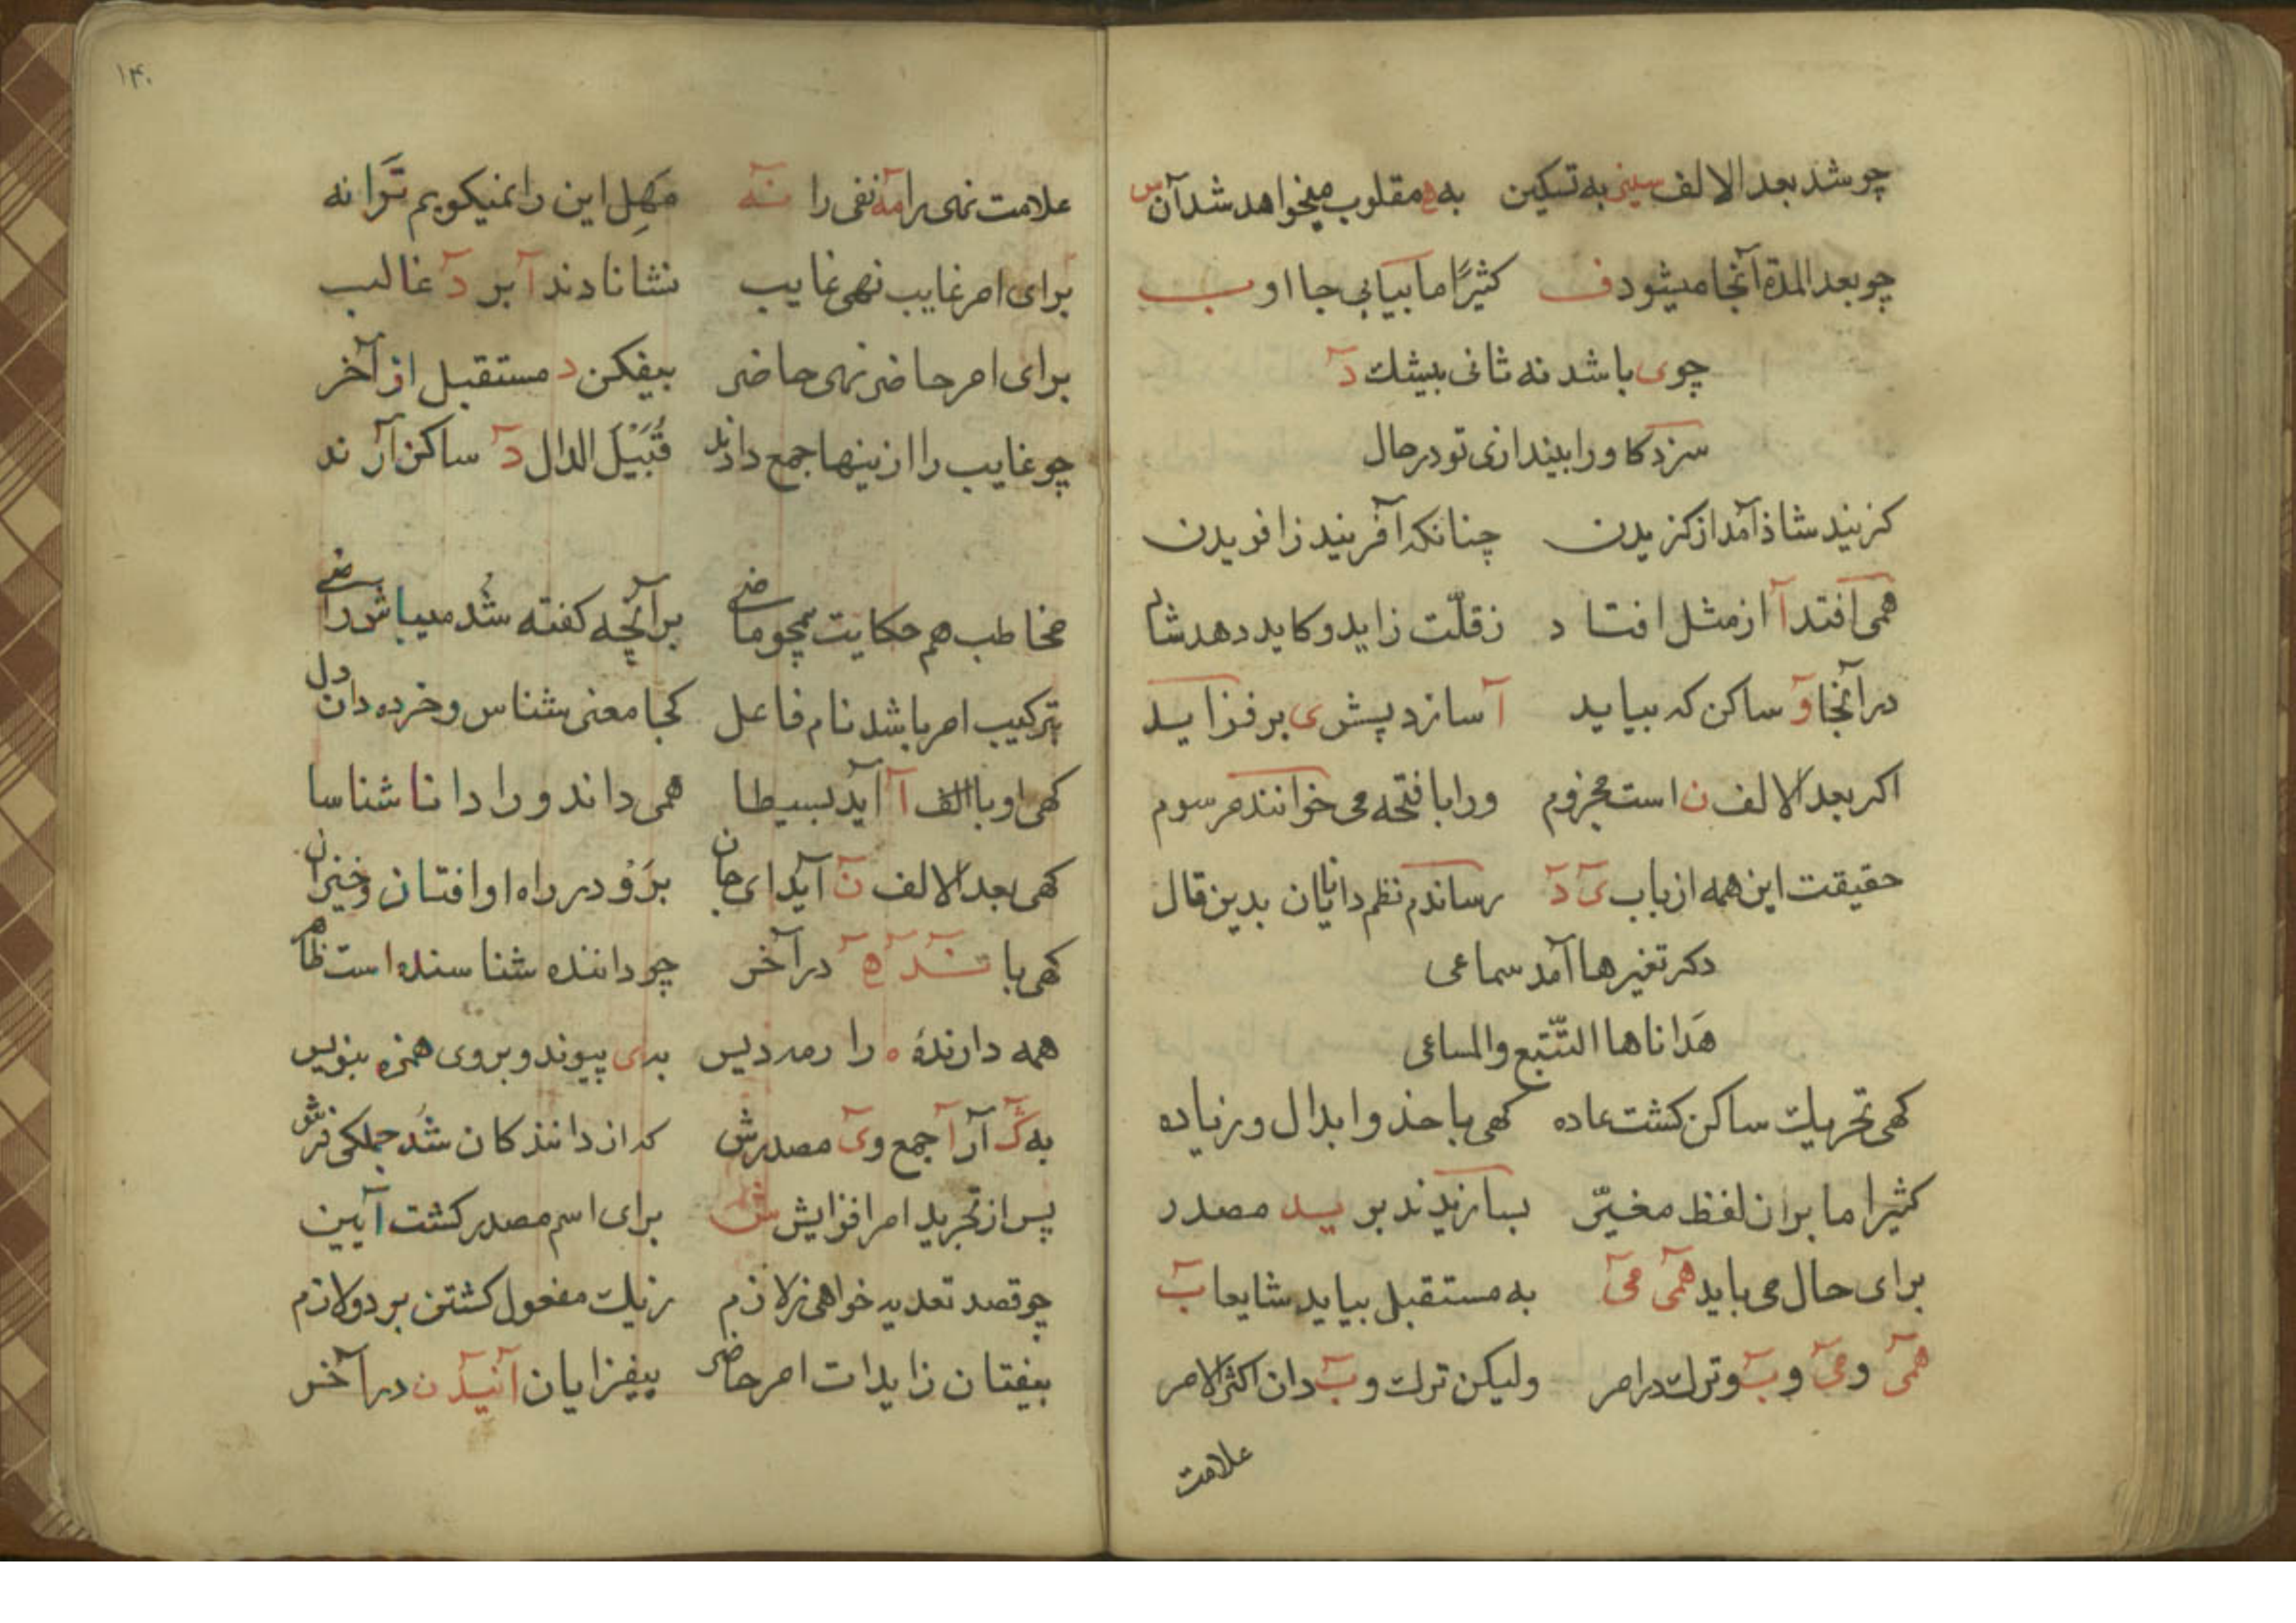 چو شد بعد الالف سین به تسکین به ه مقلوب میخواهد شد آن س
چو بعد المدة آنجا میشود ف کثیرًا ما بیابی جا او ب
چو ی باشد نه ثانی بیشك د
سزد کاو را بیندازی تو در حال
کزیند شاذ آمد از کزیدن چنانکه آفریند ز افریدن
همی افتد آ از مثل افتاد ز قلّت زاید و کاید دهد شاد
در آنجا و ساکن که بیاید آ سازد پیش ی بر فزاید
اکر بعد الالف ن است مجزوم ورا با فتحه می خوانند مرسوم
حقیقت این همه از باب ی د رساندم نظم دانایان بدین قال
دکر تغیرها آمد سماعی
هدانا ها التّتبع والمساعی
کهی تحریك ساکن کشت عاده کهی با حذ و ابدال و زیاده
کثیرا ما بران لفظ مغیّر بیازیدند بر ید مصدر
برای حال می باید همی می به مستقبل بیاید شایعا ب
همی و می و ب و ترك در امر ولیکن ترك و ب دان اکثر الامر
علامت
۱۴۰
علامت نهی را مه نفی را نه مهل این را نمیکویم ترا نه
برای امر غایب نهی غایب نشانا دند آ بر د غالب
برای امر حاضر نهی حاضر بیفکن د مستقبل از آخر
چو غایب را ازینها جمع دانند قُبَیْلَ الدال د ساکن آرند
مخاطب هم حکایت همچو ماضی بر آنچه کفته شد میباش راضی
بترکیب امر باشد نام فاعل کجا معنی شناس و خرده دان دل
کهی او با الف آ آید بسیطا همی داند ورا دانا شناسا
کهی بعد الالف ن آید ای جان برَوْ در راه او افتان و خیزان
کهی با نده در آخر چو داننده شناسنده است ظاهر
همه دارندهٔ ه را رمدیس بدی پیوند و بروی همزه بنویس
به ك آن آ جمع وی مصدرش که از دانند کان شد جملکی نشر
پس از تجرید امر افزایش ش برای اسم مصدر کشت آیین
چو قصد تعدیه خواهی ز لازم ز یك مفعول کشتن بر دو لازم
بیفتان زایدات امر حاضر بیفزایان آنیدن در آخر